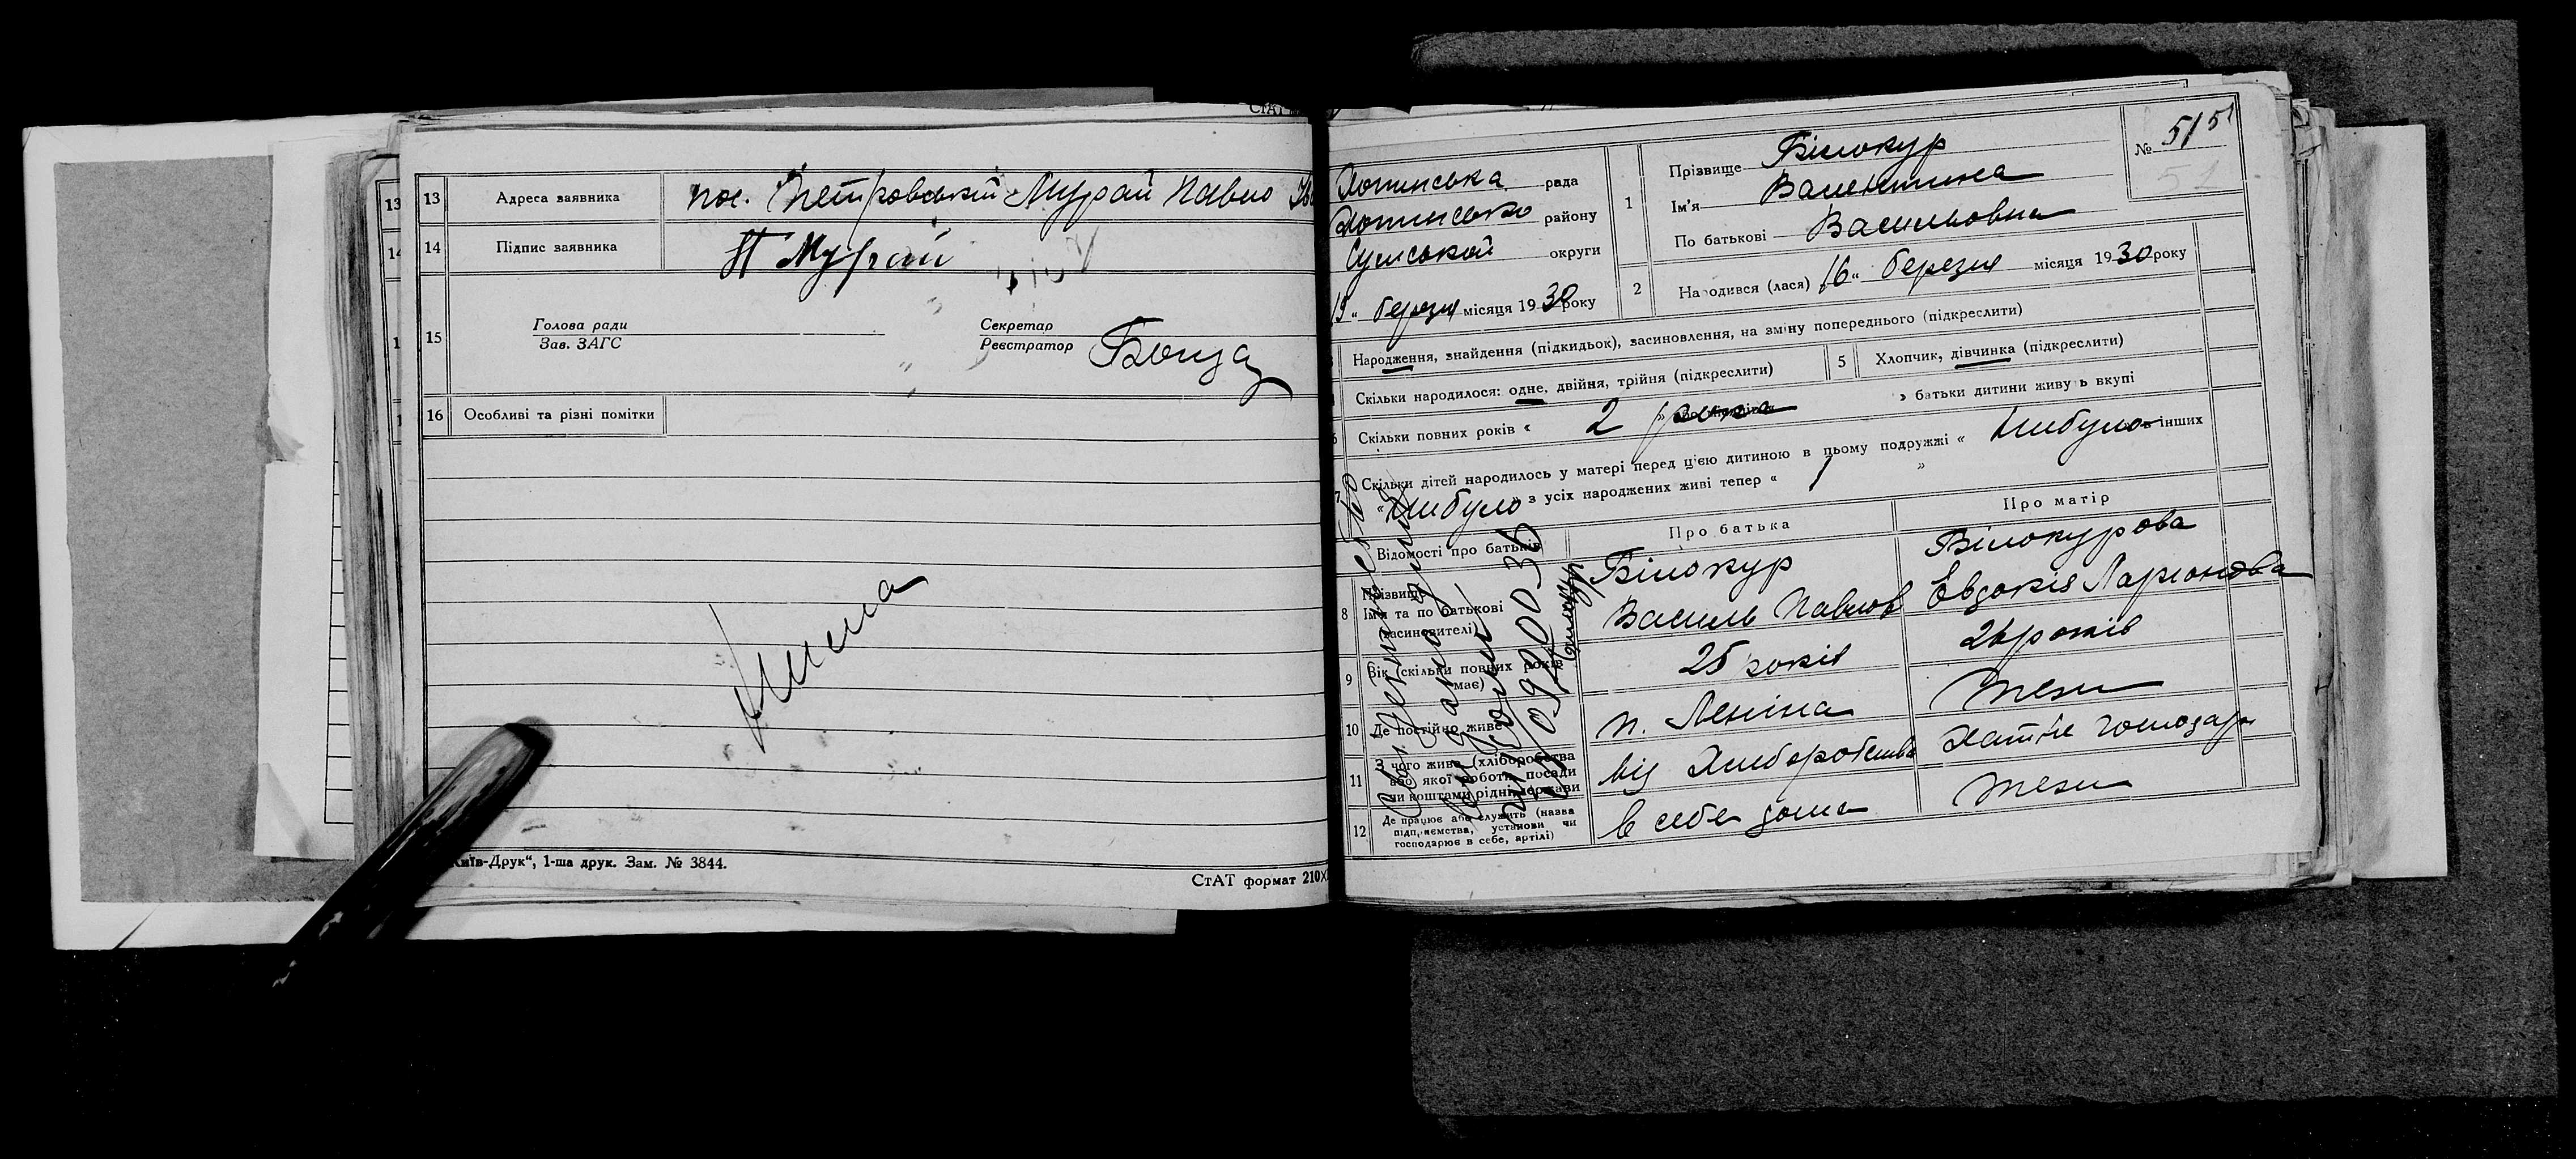 СтАТ
13
14
1
13 Адреса заявника пос. Петровський Мурай Павло
14 Підпис заявника П Мурай
15 Голова ради
Зав. ЗАГС
Секретар
Реєстратор
16 Особливі та різні помітки
Київ-Друк“, 1-ша друк. Зам. № 3844.
СтАТ формат 210X
Хотинська рада
Хотинсько району
Сумської округи
19 „ березня місяця 1930 року
1 Прізвище Білокур
Ім'я Валентина
По батькові Васильовна
№ 51 51
2 Народився (лася) „16“ березня місяця 1930 року
Народження, знайдення (підкидьок), засиновлення, на зміну попереднього (підкреслити)
Скільки народилося: одне, двійня, трійня (підкреслити)
5 Хлопчик, дівчинка (підкреслити)
Скільки повних років « 2 рока » батьки дитини живуть вкупі
7 Скільки дітей народилось у матері перед цією дитиною в цьому подружжі « Нибуло в інших
« Нибуло » з усіх народжених живі тепер « 1 »
Відомості про батьків
Про батька
Про матір
8 Прізвище
Ім'я та по батькові
(засиновителі)
Білокур
Василь Павлов
Білокурова
Евдокія Ларионова
9 Вік (скільки повних років
має)
25 років
26 років
10 Де постійно живе
п. Леніна
тежи
11 З чого живе (хліборобства
або якої роботи, посади
чи коштами рідні, держави
від Хлиборобства
Хатне господар
12 Де працює або служить (назва
підприємства, установи чи
господарює в себе, артілі)
в себе дома
тежи